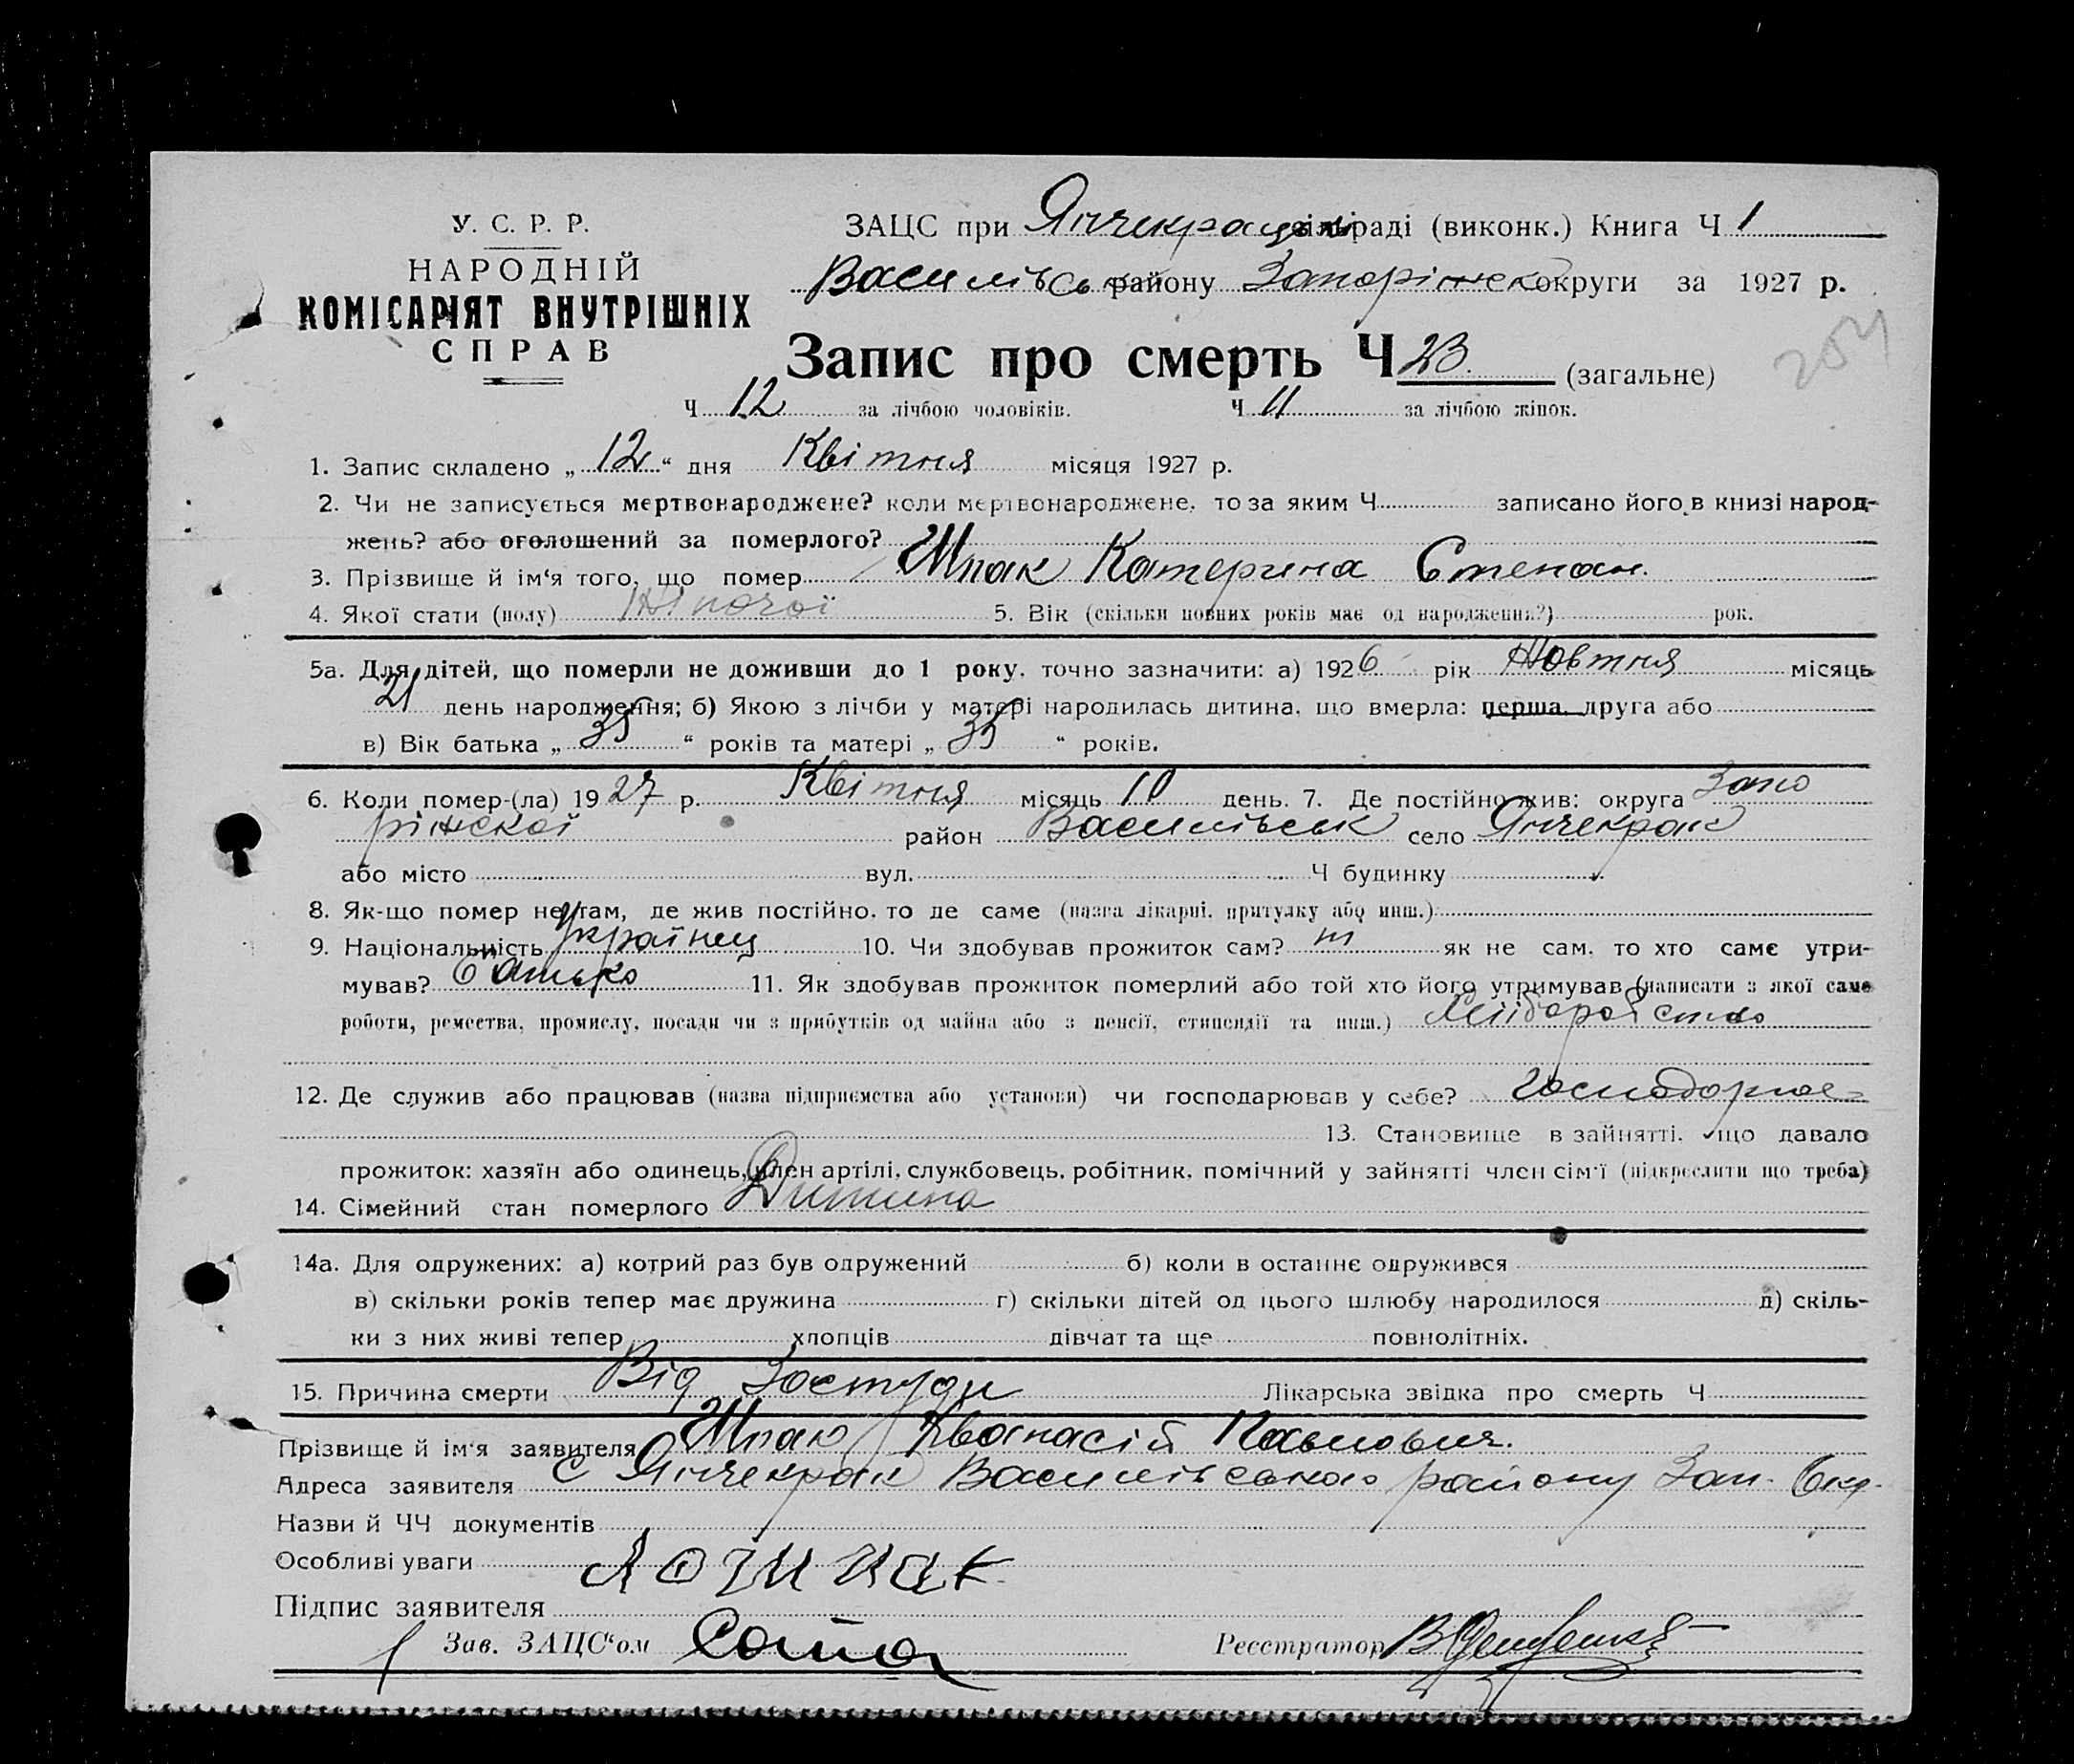 У. С. Р. Р.
НАРОДНІЙ
КОМІСАРІЯТ ВНУТРІШНІХ
СПРАВ
ЗАЦС при Янчекрацькій сільраді (виконк.) Книга Ч 1
Василівськ району Запоріжськ округи за 1927 р.
Запис про смерть Ч 23. (загальне)
204
Ч 12 за лічбою чоловіків. Ч 11 за лічбою жінок.
1. Запис складено „ 12 “ дня Квітня місяця 1927 р.
2. Чи не записується мертвонароджене? коли мертвонароджене, то за яким Ч записано його в книзі народ-
жень? або оголошений за померлого?
3. Прізвище й ім‘я того, що помер Шпак Катерина Степан.
4. Якої стати (полу) Жіночої 5. Вік (скільки повних років має од народження?) рок.
5а. Для дітей, що померли не доживши до 1 року, точно зазначити: а) 1926 рік Жовтня місяць
21 день народження; б) Якою з лічби у матері народилась дитина, що вмерла: перша, друга або
в) Вік батька „ 35 “ років та матері „ 35 “ років.
6. Коли помер-(ла) 1927 р. Квітня місяць 10 день. 7. Де постійно жив: округа Запо
ріжскої район Василівськ село Янчекрак
або місто вул. Ч будинку
8. Як-що помер не там, де жив постійно, то де саме (назва лікарні, притулку або инш.)
9. Національність Українец 10. Чи здобував прожиток сам? ні як не сам, то хто саме утри-
мував? батько 11. Як здобував прожиток померлий або той хто його утримував (написати з якої саме
роботи, ремества, промислу, посади чи з прибутків од майна або з пенсії, стипендії та инш.) Хліборобство
12. Де служив або працював (назва підприємства або установи) чи господарював у себе?
13. Становище в зайнятті, що давало
прожиток: хазяїн або одинець, член артілі, службовець, робітник, помічний у зайнятті член сім‘ї (підкреслити що треба)
14. Сімейний стан померлого Дитина
14а. Для одружених: а) котрий раз був одружений б) коли в останнє одружився
в) скільки років тепер має дружина г) скільки дітей од цього шлюбу народилося д) скіль-
ки з них живі тепер хлопців дівчат та ще повнолітніх.
15. Причина смерти Від Застуди Лікарська звідка про смерть Ч
Прізвище й ім‘я заявителя Шпак Авонасій Павлович.
Адреса заявителя с Янчекрак Василівського району Зап. Окр.
Назви й ЧЧ документів
Особливі уваги
Підпис заявителя
Зав. ЗАЦС‘ом
Реєстратор